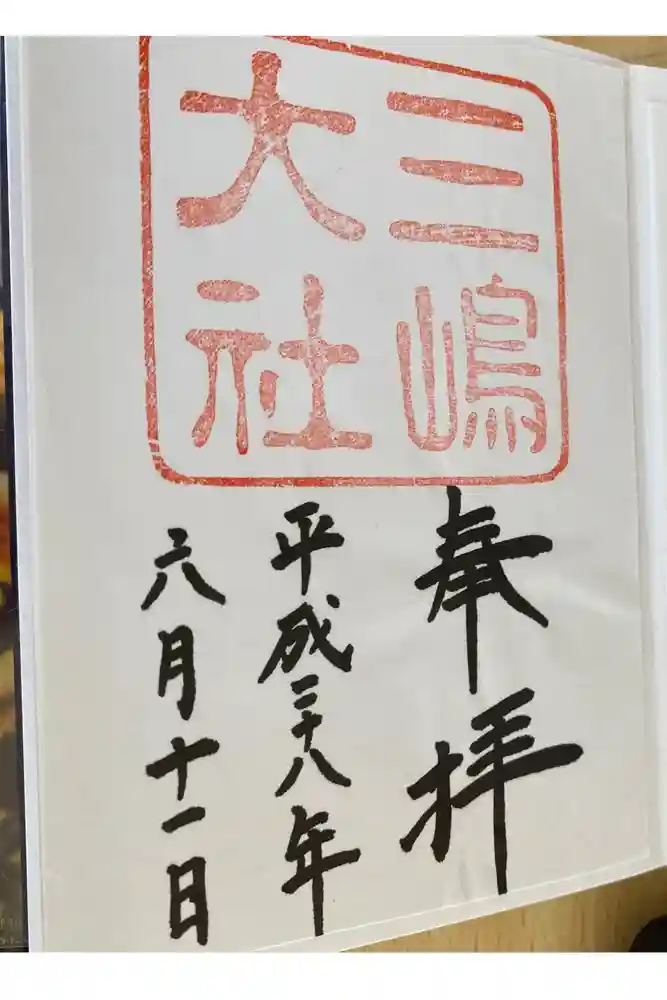 三嶋
大社
奉拝
平成二十八年
六月十一日